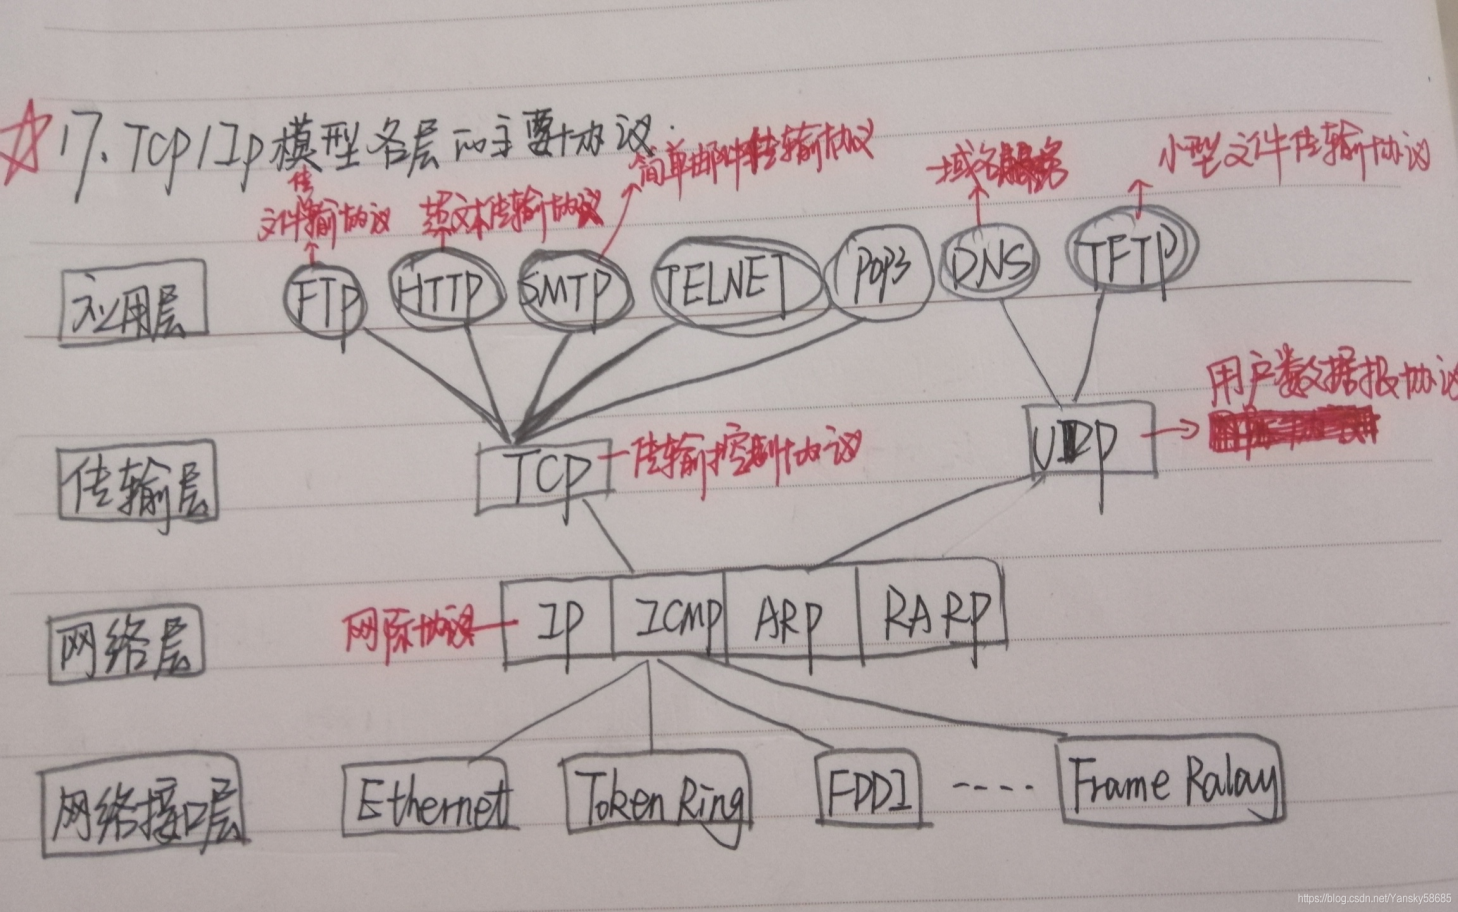 17. TCP/IP模型各层的主要协议.
简单邮件传输协议
小型文件传输协议
域名
传
文件输协议
超文本传输协议
应用层
FTP
HTTP
SMTP
TELNET
POP3
DNS
TFTP
用户数据报协议
传输层
TCP
传输控制协议
UDP
网络层
网际协议
IP
ICMP
ARP
RARP
网络接口层
Ethernet
Token Ring
FDDI
----
Frame Ralay
https://blog.csdn.net/Yansky58685